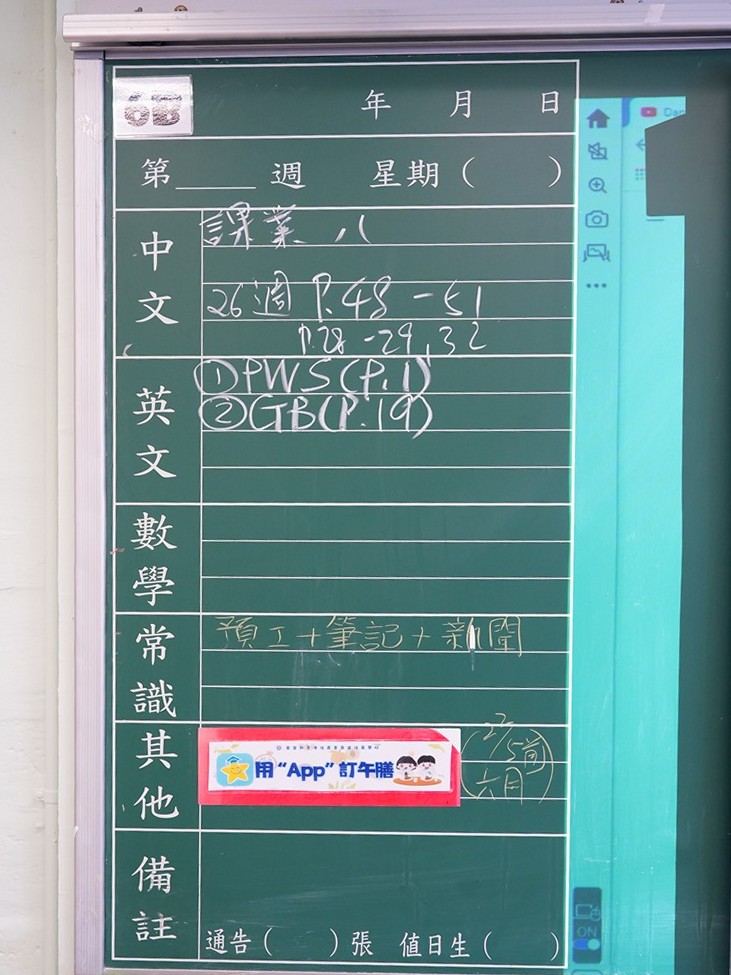 6B
年 月 日
第____週 星期( )
中文
課業 八
26週 P.48-51
P.28-29,32
英文
①PWS(P.1)
②GB(P.19)
數學
常識
預工+筆記+新聞
其他
用“App”訂午膳
(27/5前
六月)
備註
通告( )張 值日生( )
Dar
ON